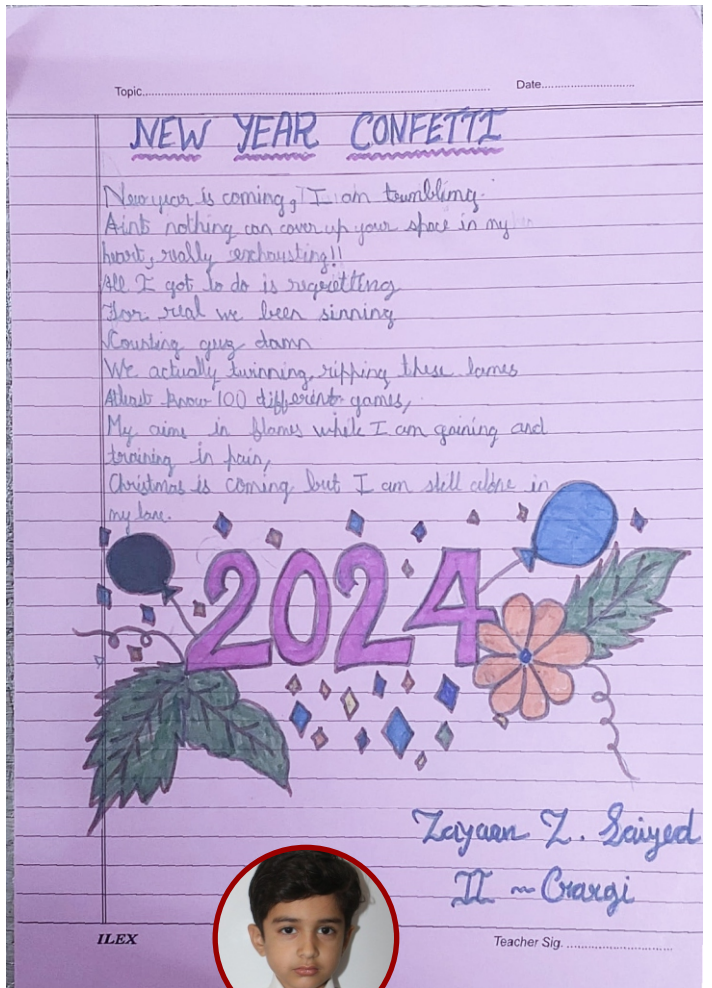 Topic.......... Date..........
NEW YEAR CONFETTI
New year is coming, I am tumbling.
Aints nothing can cover up your space in my
heart, really exchausting!!
All I got to do is regrietting
For real we been sinning
Counting guz damn
We actually twinning, ripping these lames
Atleast know 100 different games,
My aims in flames while I am gaining and
training in pain,
Christmas is coming but I am still alone in
my lane.
2024
Zayaan Z. Saiyed
II ~ Gargi
ILEX
Teacher Sig. ..........